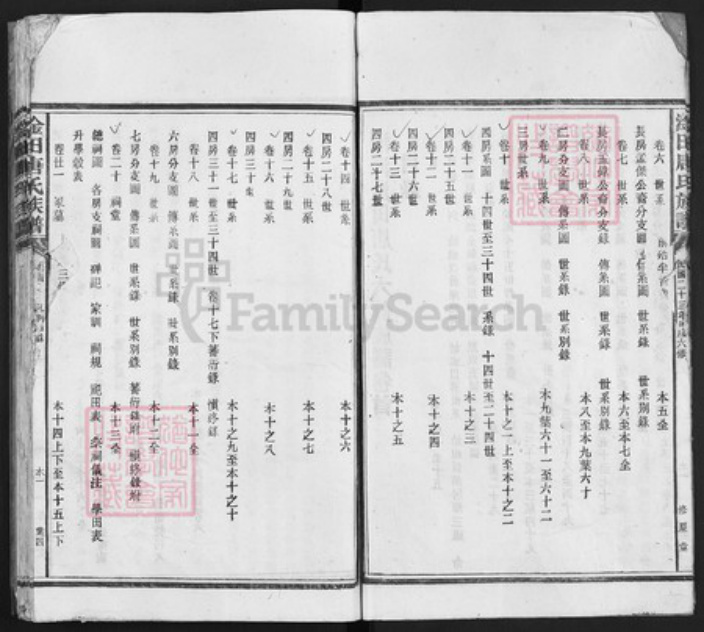 卷六 世系
長房 公裔分支圖 傳系圖 世系錄 世系別錄 本五全
卷七 世系 本六至本七全
長房 公裔分支錄 傳系圖 世系錄 世系別錄
卷八 世系 本八至本九葉六十
二房分支圖 傳系圖 世系錄 世系別錄
卷九 世系 本九葉六十一至六十二
三房世系
卷十 世系 本十之一上至本十之二
四房系圖 十四世至三十四世 系錄 十四世至二十四世
卷十一 世系 本十之三
四房二十五世
卷十二 世系 本十之四
四房二十六世
卷十三 世系 本十之五
四房二十七世
卷十四 世系 本十之六
四房二十八世
卷十五 世系 本十之七
四房二十九世
卷十六 世系 本十之八
四房三十世
卷十七 世系 本十之九至本十之十
四房三十一世至三十四世 卷十七下蕃衍錄 慎終錄
卷十八 世系 本十一全
六房分支圖 傳系圖 世系錄 世系別錄
卷十九 世系 本十二全
七房分支圖 傳系圖 世系錄 世系別錄 蕃衍錄附 慎終錄附
卷二十 祠堂 本十三全
總祠圖 各房支祠圖 碑記 家訓 祠規 祀田表 祭祠儀注 學田表
升學穀表
卷廿一 冢墓 本十四上下至本十五上下
唐氏族譜
葉四
FamilySearch